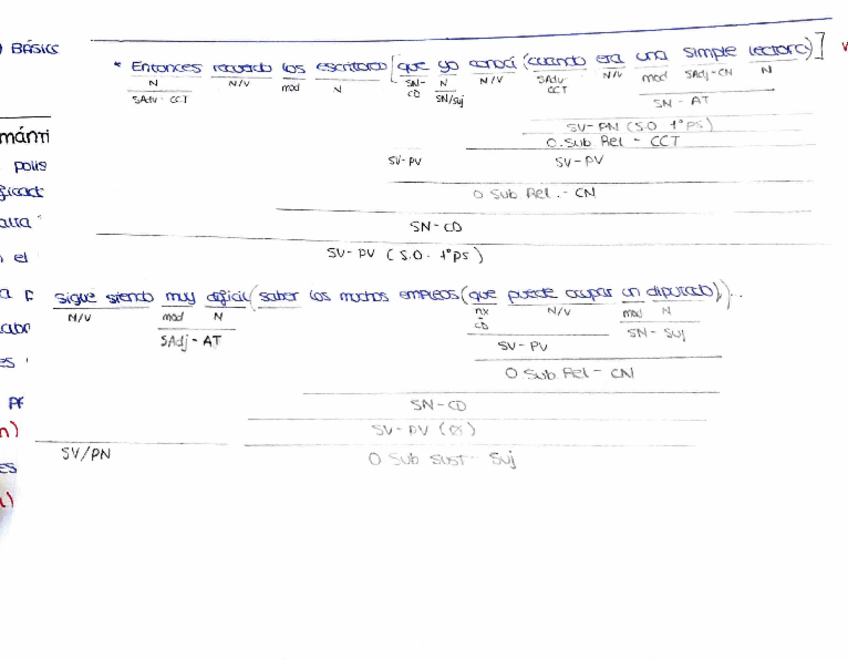 BÁSICS
* Entonces recuerdo los escritores [que yo conocí (cuando era una simple lectora)]
N N/V mod N SN- N N/V SAdv N/V mod SAdj-CN N
SAdv - CCT CD SN/Suj CCT SN - AT
SV- PN (S.O 1ª ps)
O. Sub Rel - CCT
SV-PV SV-PV
O Sub Rel. - CN
SN-CD
SV-PV (S.O. 1ª ps)
mánti
el
Sigue siendo muy difícil (saber los muchos empleos (que puede ocupar un diputado)).
N/V mod N nx N/V mod N
SAdj - AT CD SN - Suj
SV - PV
O Sub Rel - CN
SN-CD
SV-PV (OS)
SV/PN O Sub SUST - Suj